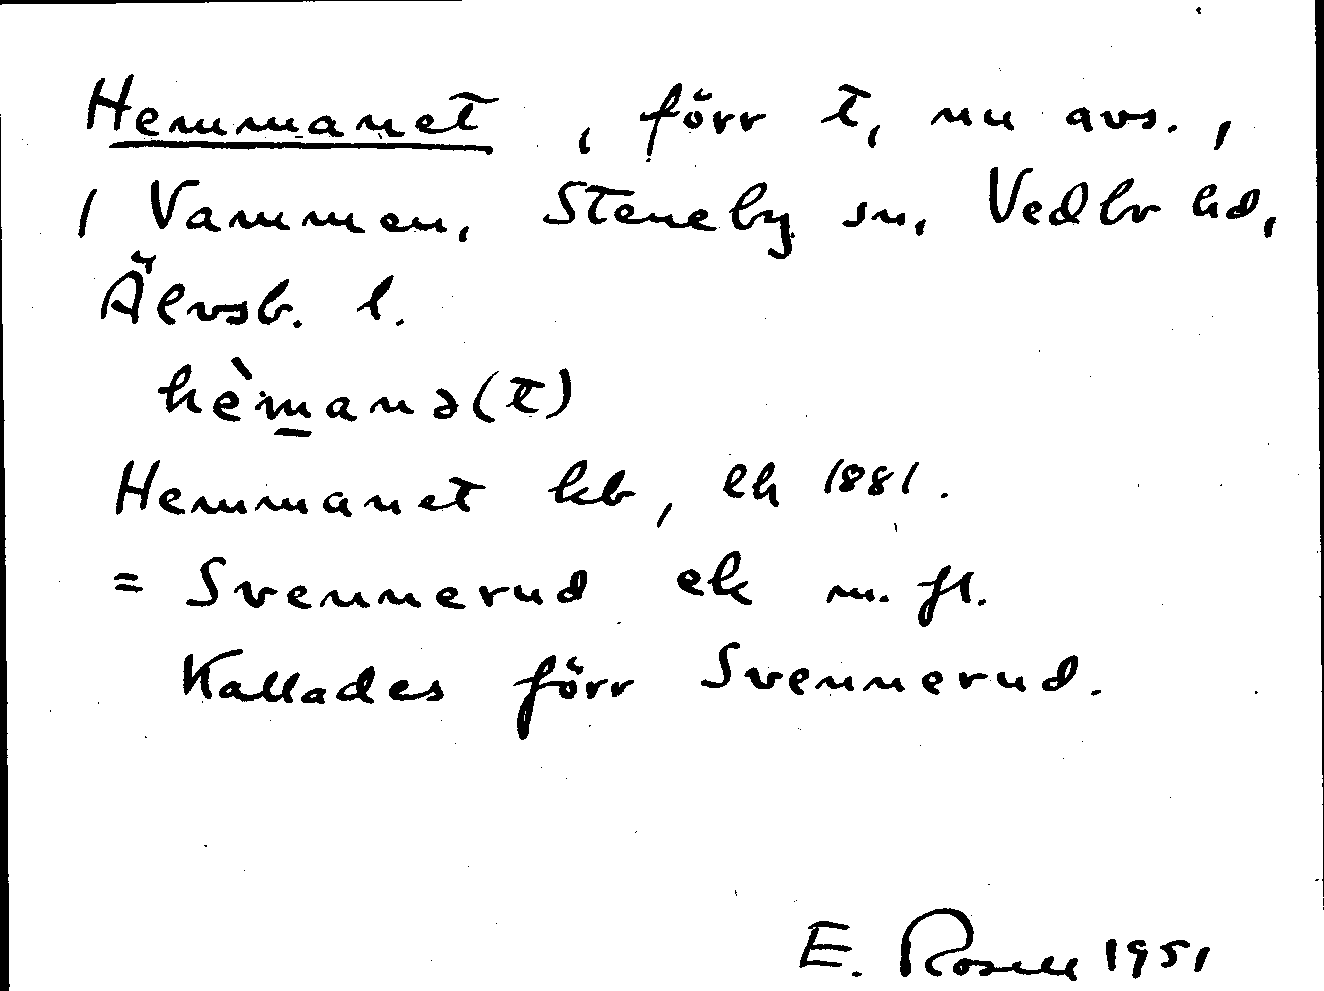 Hemmanet, förr t, nu avs.,
i Vammen, Steneby sn, Vedbo hd,
Älvsb. l.
hèm̲anə(t)
Hemmanet kb, lh 1881.
= Svennerud ek m. fl.
Kallades förr Svennerud.
E. Rosell 1951